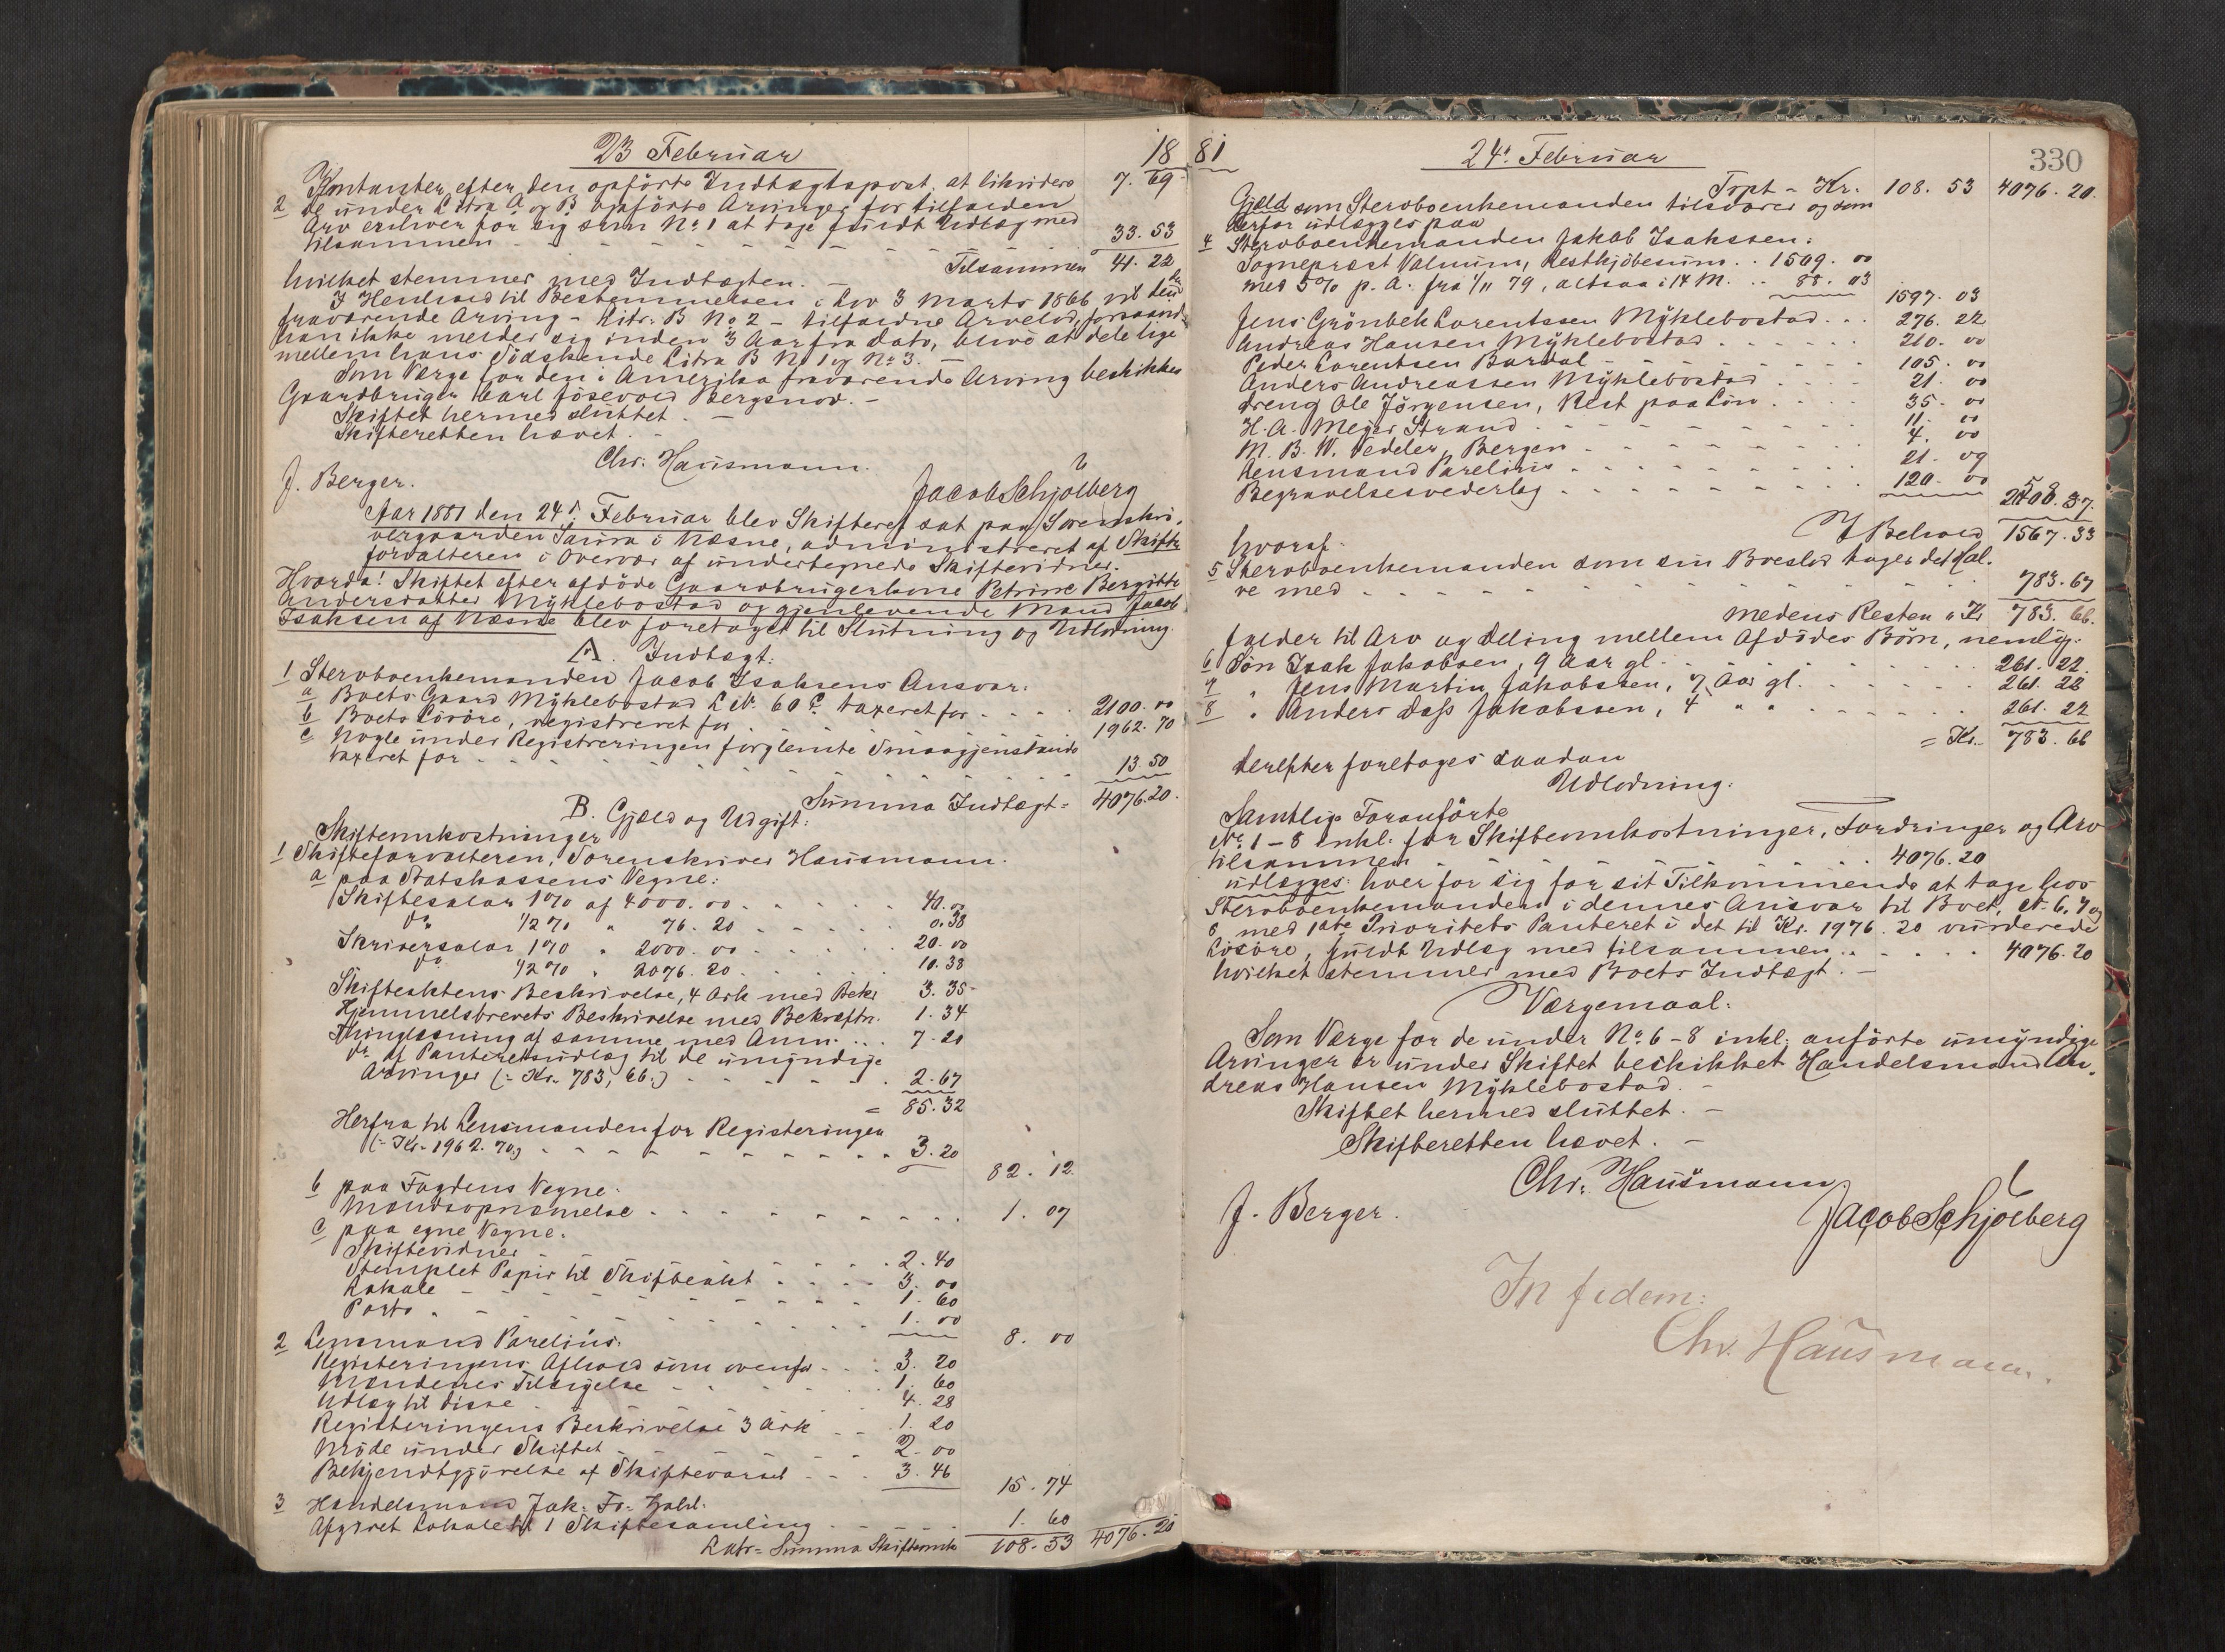 23 Februar
18
Kontanter efter den opförte Indtægtspost, at likvidere 7. 69
2 de under Litra A. og B. opförte Arvinger for tilfalden
Arv enhver for sig som No 1 at tage fuldt Udlæg med
tilsammen 33. 53
Tilsammen 41. 22
hvilket stemmer med Indtægten. –
I Henhold til Bestemmelsen i Lov 3 Marts 1866 vil den
fraværende Arving – Litr. B No 2 – tilfaldne Arvelod, forsaavidt
han ikke melder sig inden 3 Aar fra dato, blive at dele lige
mellem hans Södskende Litra B No 1 og No 3. –
Som Værge for den i Amerika fraværende Arving beskikkes
Gaardbruger Carl Jösevold Bergsnov. –
Skiftet hermed sluttet. –
Skifteretten hævet. –
Chr. Hausmann.
J. Berger.
Jacob Schjolberg
Aar 1881 den 24de Februar blev Skifteret sat paa Sorenskri-
vergaarden i Næsne, administreret af Skifte-
forvalteren i Overvær af undertegnede Skiftevidner.
Hvorda! Skiftet efter afdöde Gaardbrugerkone Petrine Bergitte
Andersdatter Myklebostad og gjenlevende Mand Jacob
Isaksen af Næsne blev foretaget til Slutning og Udlodning.
A. Indtægt:
1 Sterboenkemanden Jacob Isaksens Ansvar:
a Boets Gaard Myklebostad L No 60 c taxeret for 2100. 00
b Boets Lösöre, registreret for 1962. 70
c Nogle under Registreringen forglemte Smaagjenstande
taxeret for 13. 50
Summa Indtægt = 4076. 20.
B. Gjæld og Udgift:
Skifteomkostninger
1 Skifteforvalteren, Sorenskriver Hausmann.
a paa Statskassens Vegne:
Skiftesalær 1% af 4000. 00 40. 00
do 1/2% " 76. 20 0. 38
Skriversalær 1% " 2000. 00 20. 00
do 1/2% " 2076. 20 10. 38
Skifteaktens Beskrivelse, 4 Ark med Bekr. 3. 35
Hjemmelsbrevets Beskrivelse med Bekræftn. 1. 34
Thinglæsning af samme med Anm. 7. 20
do af Panteretsudlæg til de umyndige
Arvinger (: Kr. 783, 66 :) 2. 67
= 85. 32
Herfra til Lensmanden for Registeringen
(: Kr. 1962. 70 :) 3. 20
82. 12.
b paa Fogdens Vegne.
Mandsopnævnelse 1. 07
c paa egne Vegne.
Skiftevidner 2. 40
Stemplet Papir til Skifteakt 3. 00
Lokale 1. 60
Porto 1. 00
8. 00
2 Lensmand Parelius.
Registeringens Afhold som ovenfor 3. 20
Mændenes Tilsigelse 1. 60
Udlæg til disse 4. 28
Registeringens Beskrivelse 3 Ark 1. 20
Möde under Skiftet 2. 00
Bekjendtgjörelse af Skiftevarsel 3. 46
15. 74
3 Handelsmand Jak. Fr. Zahl.
Afgivet Lokale til 1 Skiftesamling 1. 60
Latr. Summa Skifteomk. 108. 53 4076. 20
81
24de Februar
330
Trpt – Kr. 108. 53 4076. 20.
Gjæld som Sterboenkemanden tilsvarer og som
derfor udlægges paa
4 Sterboenkemanden Jakob Isaksen:
Sognepræst Valnum, Restkjöbesum 1509. 00
med 5% p. A. fra 1/11 79, altsaa i 14 M. 88. 03
1597. 03
Jens Grönbek Lorentssen Myklebostad 276. 22
Andreas Hansen Myklebostad 210. 00
Peder Lorentsen Bardal 105. 00
Anders Andreassen Myklebostad 21. 00
dreng Ole Jörgensen, Rest paa Lön 35. 00
H. A. Meyer Strand 11. 00
M. B. W. Vedeler, Bergen 4. 00
Lensmand Parelius 21. 09
Begravelsesvederlag 120. 00
2400. 37.
I Behold 1567. 33
hvoraf
5 Sterboenkemanden som sin Boeslod tager det Hal-
ve med 783. 67
medens Resten = Kr. 783. 66.
falder til Arv og Deling mellem Afdödes Börn, nemlig:
6 Sön Isak Jakobsen, 9 Aar gl. 261. 22.
7 " Jens Martin Jakobssen, 7 Aar gl. 261. 22
8 " Anders Dass Jakobssen, 4 " " 261. 22
= Kr. 783. 66
Derefter foretages saadan
Udlodning:
Samtlige Foranförte
No 1 – 8 inkl. for Skifteomkostninger, Fordringer og Arv
tilsammen 4076. 20
udlægges: hver for sig for sit Tilkommende at tage hos
Sterboenkemanden i dennes Ansvar til Boet, No 6, 7 og
8 med 1ste Prioritets Panteret i det til Kr. 1976. 20 vurderede
Lösöre, fuldt Udlæg med tilsammen 4076. 20
hvilket stemmer med Boets Indtægt. –
Værgemaal:
Som Værge for de under No 6 – 8 inkl. anförte umyndige
Arvinger er under Skiftet beskikket Handelsmand An-
dreas Hansen Myklebostad. –
Skiftet hermed sluttet. –
Skifteretten hævet. –
Chr. Hausmann
J. Berger.
Jacob Schjolberg
In fidem:
Chr. Hausmann.